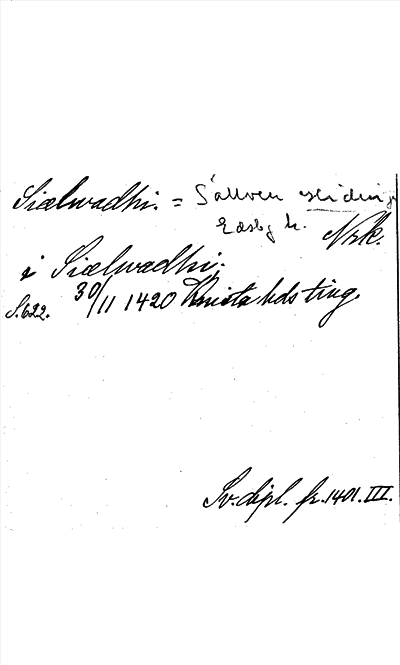 Siælwadhi. = Sälven
Edsbg h. Nrk.
i Siælwadhi.
S. 622. 30/11 1420 Knista hds ting.
Sv. dipl. fr. 1401. III.